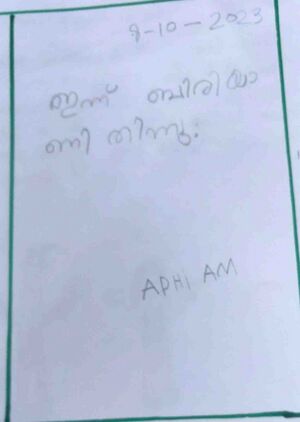 8-10-2023
ഇന്ന് ബിരിയാ
ണി തിന്നു:
APHI AM